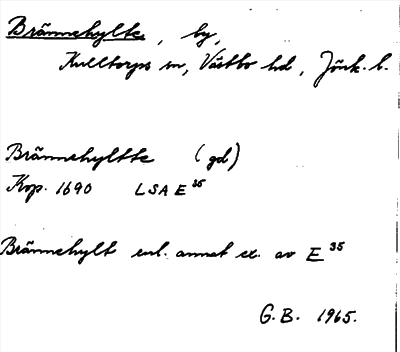 Brännehylte, by,
Kulltorps sn, Västbo hd, Jönk. l.
Brännehyltte (gd)
Kop. 1690 LSA E 35
Brännehylt enl. annat ex. av E 35
G.B. 1965.